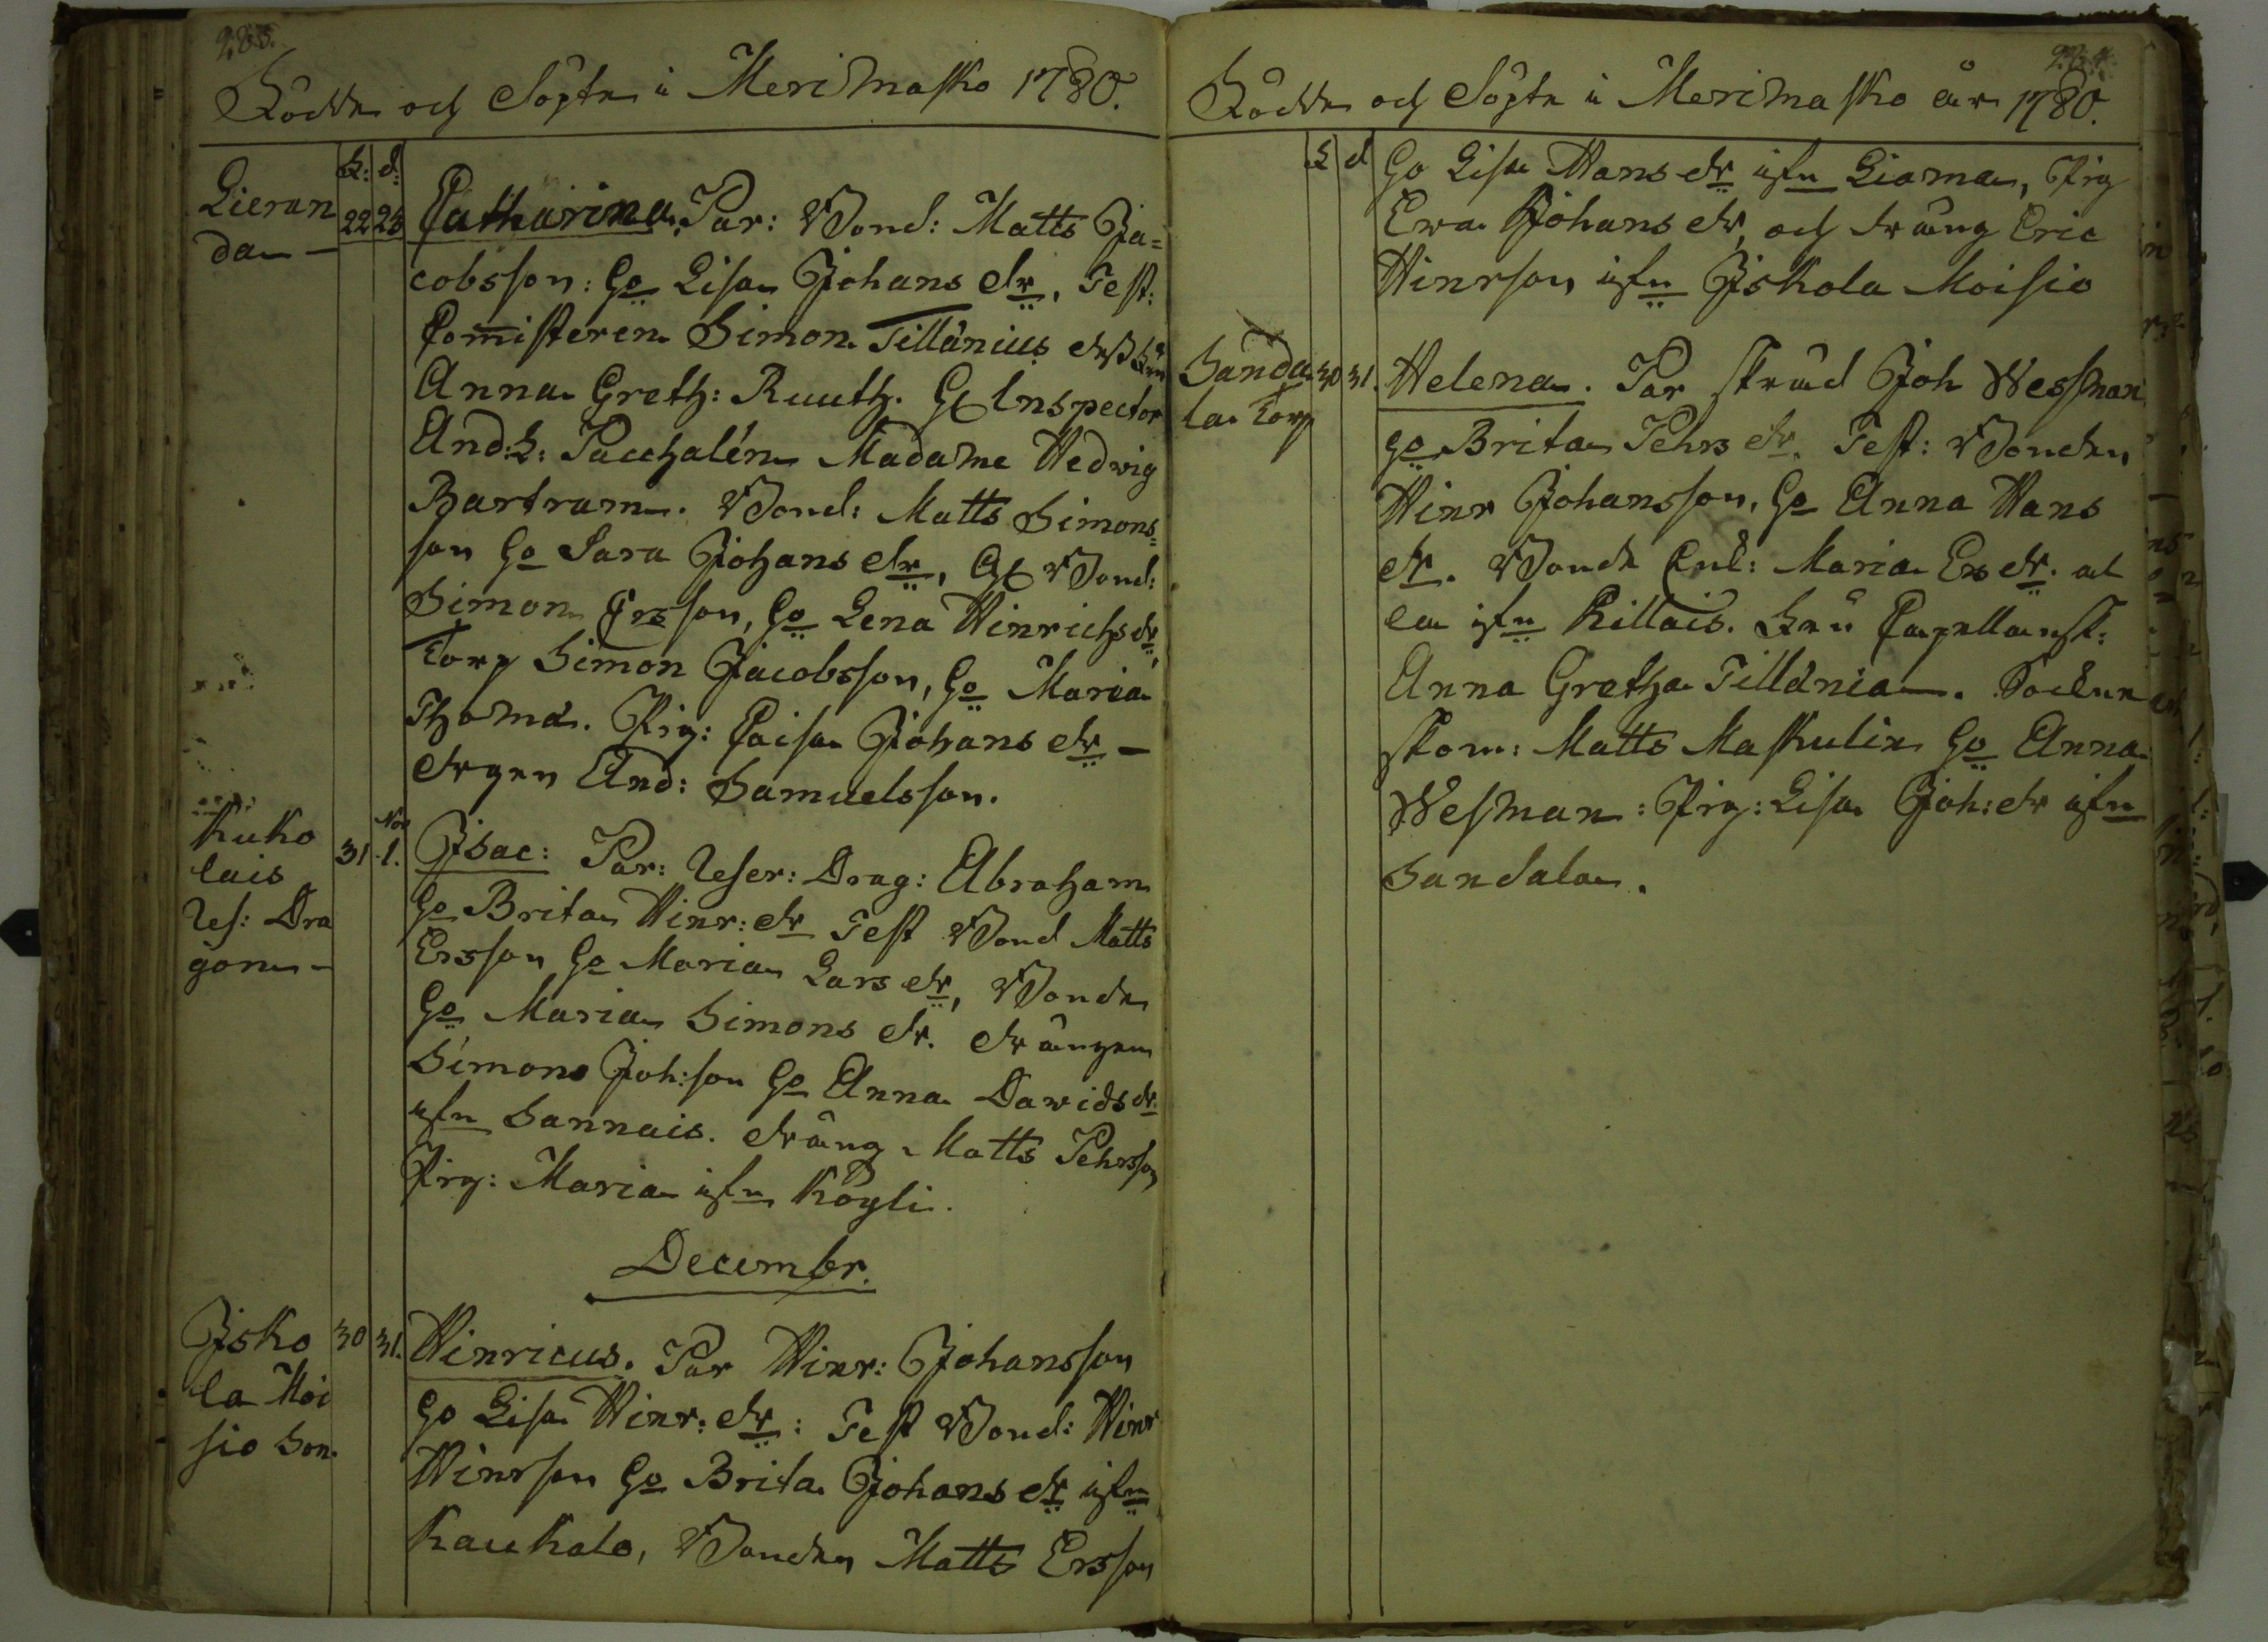 Födde och Döpte i Merimasko 1780.
f: d:
Lieran
da
22 23 Catharina. Par: Bond: Matts Ja=
cobsson: Ho Lisa Johans dr, Test:
Comisteren Simon Tillänius
Anna Greth: Ruuth. Inspector
And: L: Pacchalén Madame Hedwig
Bartram. Bond: Matts Simons=
son Ho Sara Johans dr, Bond:
Simon Ersson, Ho Lena Hinrichs dr,
Torp Simon Jacobsson, Ho Maria
Thomæ. Pig: Caisa Johans dr -
drgen And: Samuelsson.
Kuko
lais
Res: Dra
gon -
31 Nov 1. Isac: Par: Reser: Drag: Abraham
Ho Brita Hinr: dr Test Bond Matts
Ersson Ho Maria Lars dr, Bonden
Ho Maria Simons dr. drängen
Simon Joh:son Ho Anna Davids dr
ifrn Sannais. dräng Matts Pehrsson
Pig: Maria ifrn Köyli.
Decembr.
Isko
la Moi
sio Son.
30 31. Hinricus. Par Hinr: Johansson
Ho Lisa Hinr: dr: Test Bond: Hinr
Hinrson Ho Brita Johans dr ifrn
Kaukola, Bonden Matts Ersson
Födde och Döpte i Merimasko år 1780.
f d
Ho Lisa Hans dr ifrn Liama, Pig
Ewa Johans dr, och dräng Eric
Hinrson ifrn Iskola Moisio
Sanda
la Torp
30 31. Helena. Par skräd Joh Wessman
Ho Brita Pehrs dr. Test: Bonden
Hinr Johansson, Ho Anna Hans
dr. Bonde Enk: Maria Ers dr. al
la ifrn Killais. Fru Capellansk:
Anna Gretha Tillänia. Socken
skom: Matts Maskulin Ho Anna
Wesman: Pig: Lisa Joh: dr ifrn
Sandala.